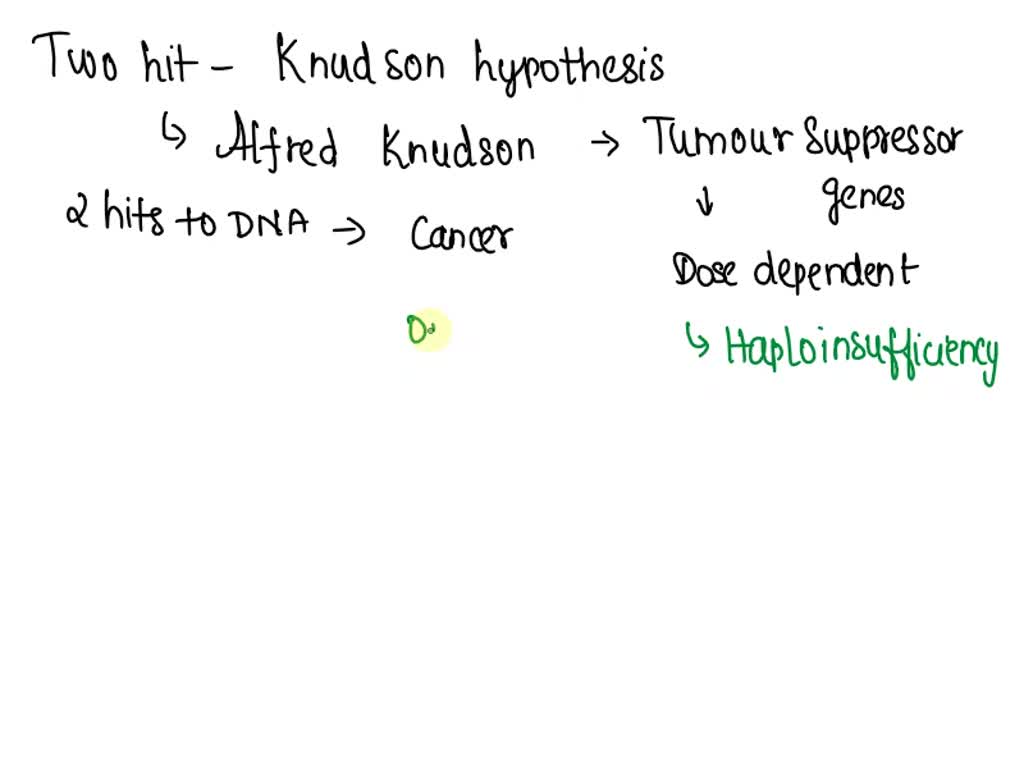 Two hit - Knudson hypothesis
↳ Alfred Knudson → Tumour Suppressor
genes
2 hits to DNA → Cancer
↓
Dose dependent
↳ Haploinsufficiency